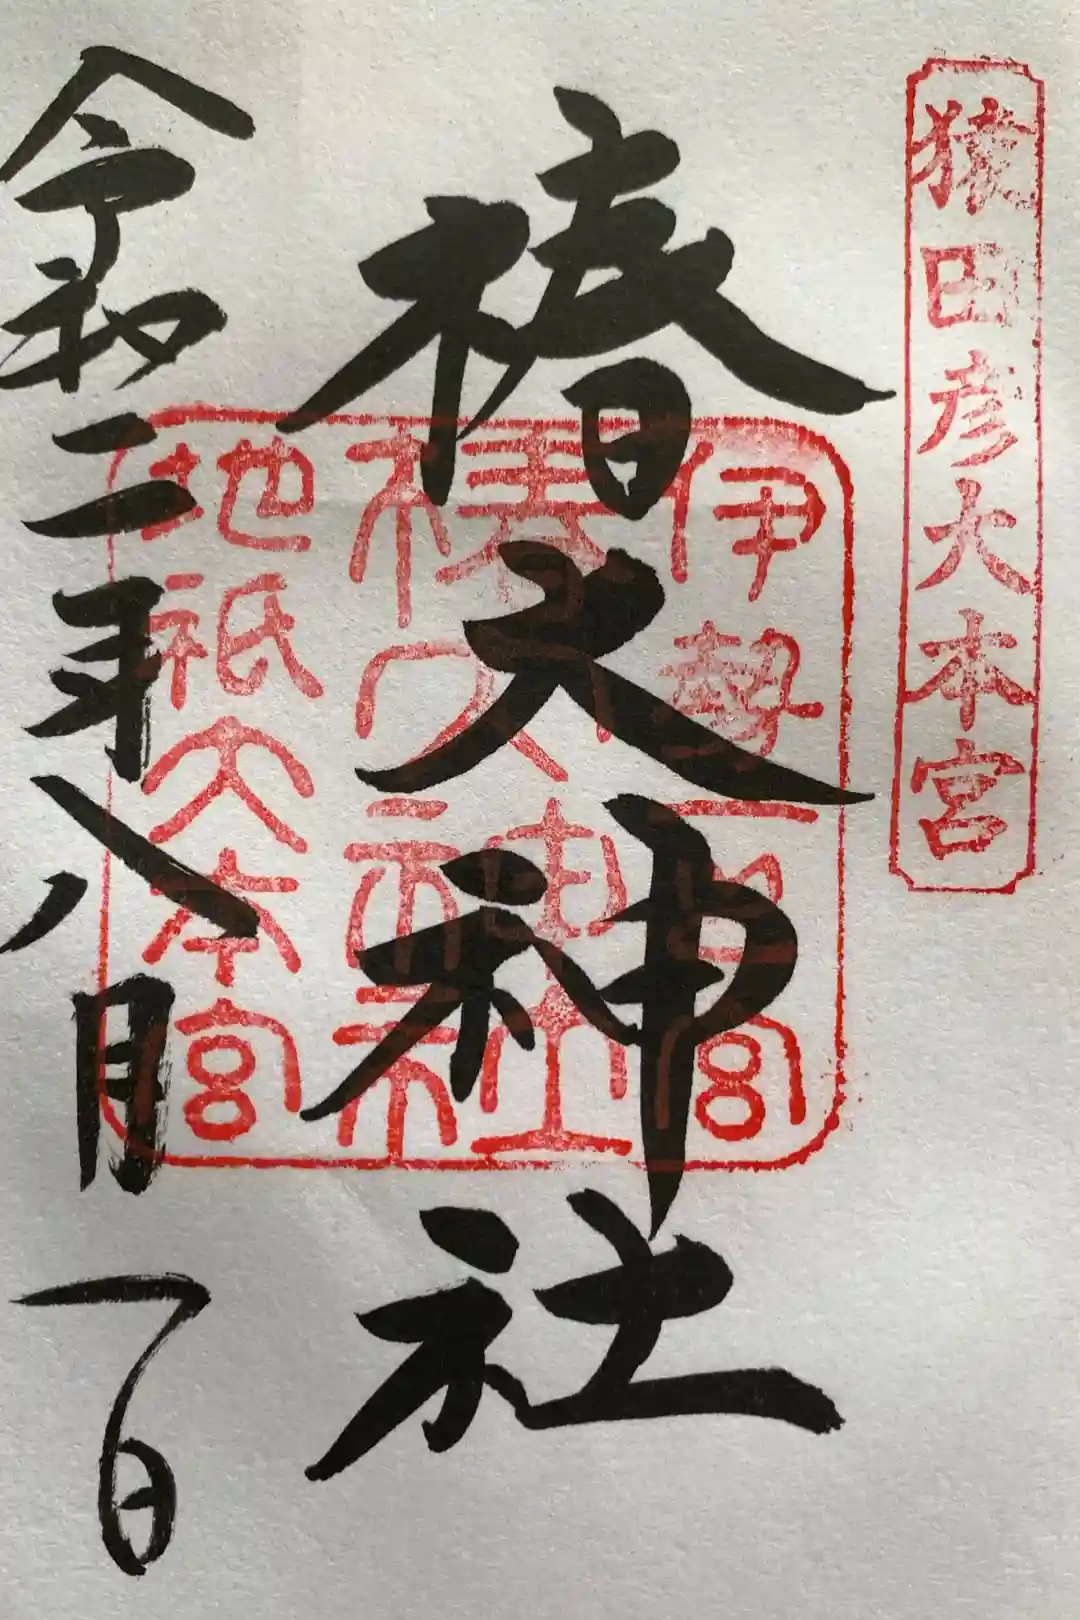 猿田彦大本宮
椿大神社
伊勢一
宮
椿大神社
地祇大本宮
令和二年八月一日